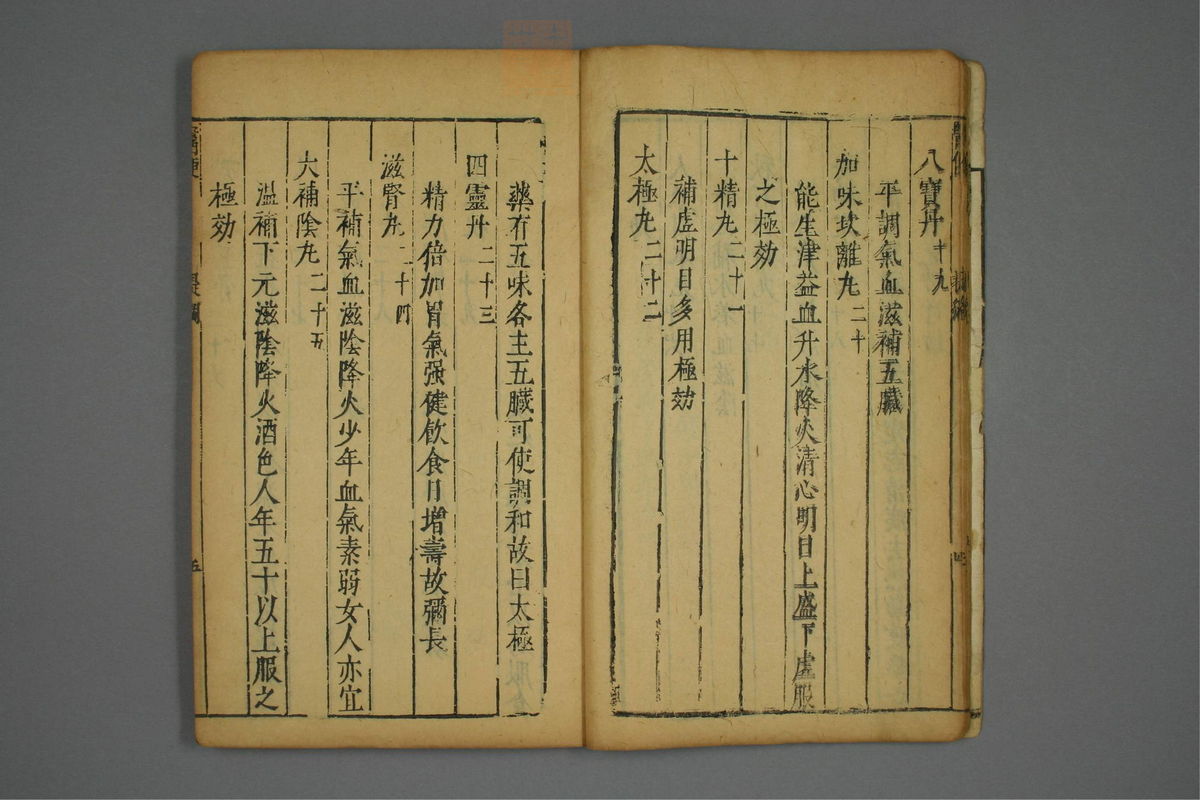 八寶丹十九
平調氣血滋補五臟
加味坎離丸二十
能生津益血升水降火清心明目上盛下虛服
之極効
十精丸二十一
補虛明目多用極効
太極丸二十二
藥有五味各主五臟可使調和故曰太極
四靈丹二十三
精力倍加胃氣强健飲食日增壽故彌長
滋腎丸二十四
平補氣血滋陰降火少年血氣素弱女人亦宜
大補陰丸二十五
溫補下元滋陰降火酒色人年五十以上服之
極効
醫便
提綱
五